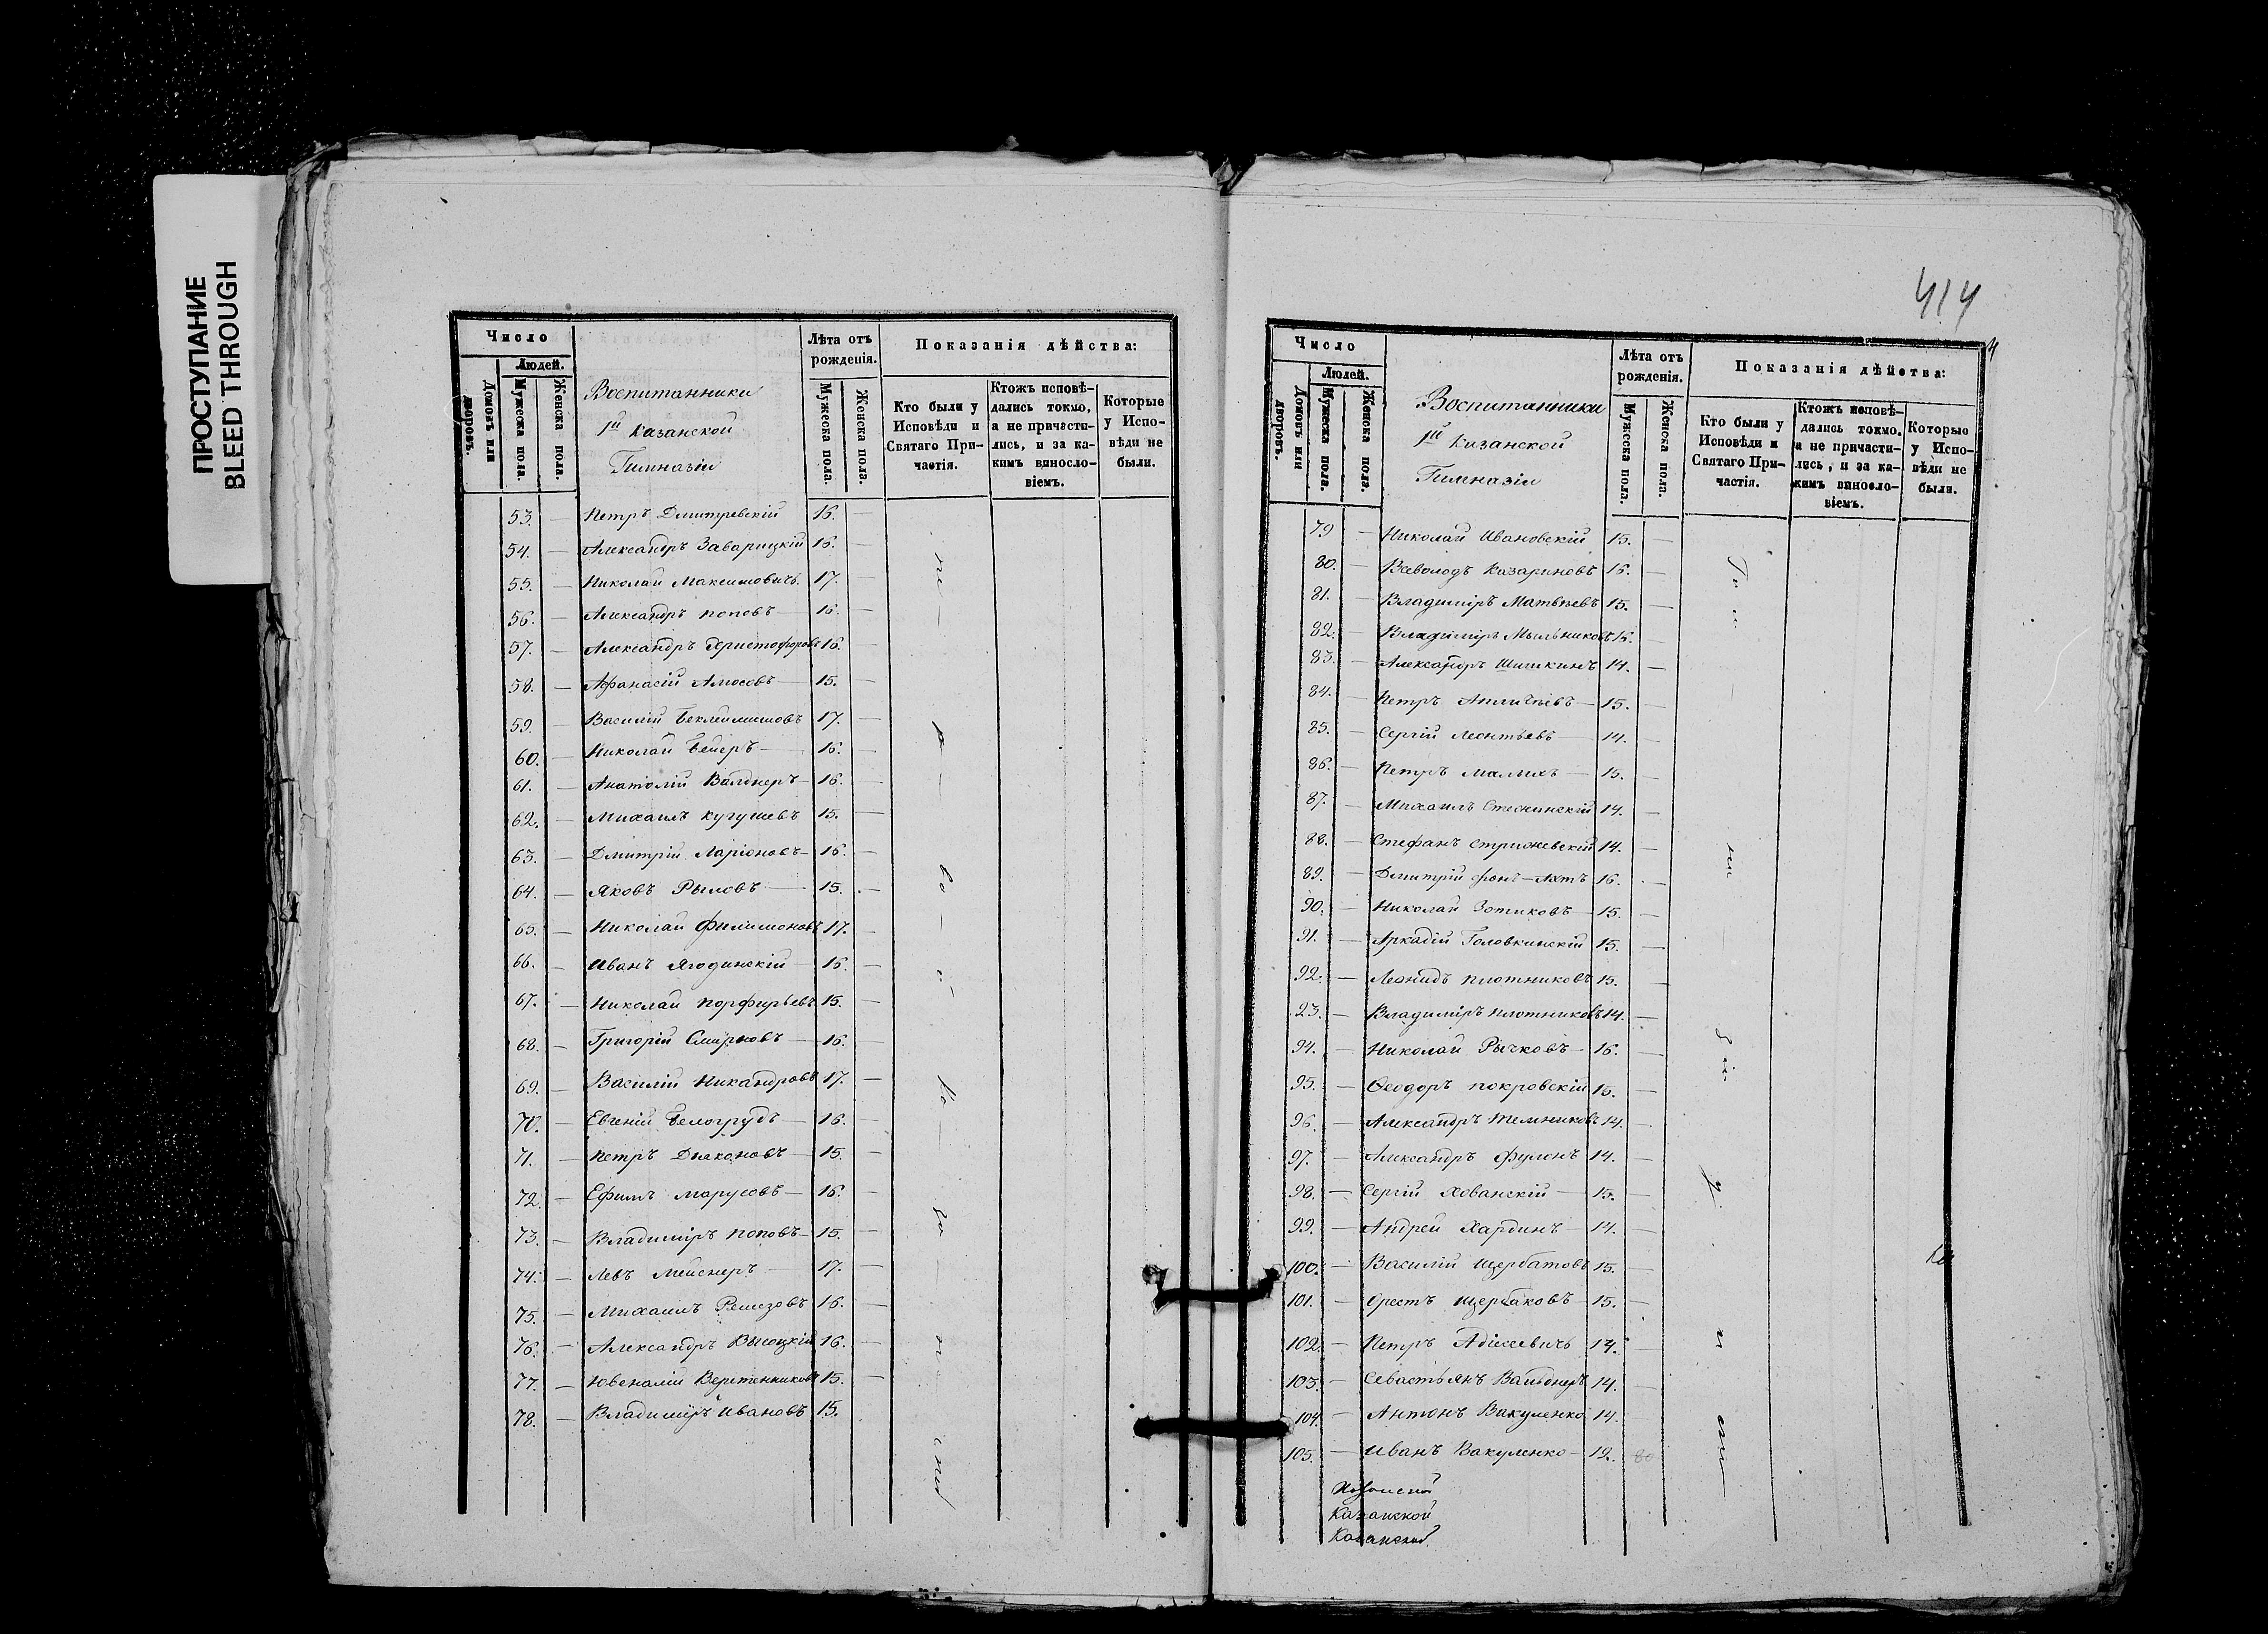 ПРОСТУПАНИЕ
BLEED THROUGH
Число
Людей.
Домовъ или дворовъ.
Мужеска пола.
Женска пола.
Воспитанники
1й Казанской
Гимназіи
Лѣта отъ рожденія.
Мужеска пола.
Женска пола.
Показанія дѣйства:
Кто были у Исповѣди и Святаго Причастія.
Ктожъ исповѣдались токмо, а не причастились, и за какимъ винословіемъ.
Которые у Исповѣди не были.
53. — Петръ Дмитревскій 16. —
54. — Александръ Заварицкій 16. —
55. — Николай Максимовичъ 17. —
56. — Александръ Поповъ — 16. —
57. — Александръ Христофоровъ 16. —
58. — Афанасій Амосовъ — 15. —
59. — Василій Беклемишовъ 17. —
60. — Николай Бейеръ — 16. —
61. — Анатолій Валднеръ — 16. —
62. — Михаилъ Кугушевъ 15. —
63. — Дмитрій Ларіоновъ — 16. —
64. — Яковъ Рыловъ — 15. —
65. — Николай Филимоновъ 17. —
66. — Иванъ Ягодинскій — 16. —
67. — Николай Порфирьевъ 15. —
68. — Григорій Смирновъ — 16. —
69. — Василій Никандровъ 17. —
70. — Евгеній Белогрудъ — 16. —
71. — Петръ Дьяконовъ — 15. —
72. — Ефимъ Марусовъ — 16. —
73. — Владиміръ Поповъ — 15. —
74. — Левъ Мейснеръ — 17. —
75. — Михаилъ Ремезовъ 16. —
76. — Александръ Высоцкій 16. —
77. — Ювеналій Веретенниковъ 15. —
78. — Владиміръ Ивановъ 15.
414
Число
Людей.
Домовъ или дворовъ.
Мужеска пола.
Женска пола.
Воспитанники
1й Казанской
Гимназіи
Лѣта отъ рожденія.
Мужеска пола.
Женска пола.
Показанія дѣйства:
Кто были у Исповѣди и Святаго Причастія.
Ктожъ исповѣдались токмо, а не причастились, и за какимъ винословіемъ.
Которые у Исповѣди не были.
79 — Николай Ивановскій 15. —
80. — Всеволодъ Казариновъ 16. —
81. — Владиміръ Матвѣевъ 15. —
82. — Владиміръ Мыльниковъ 16. —
83. — Александръ Шишкинъ 14. —
84. — Петръ — 15. —
85. — Сергій Леонтьевъ — 14. —
86. — Петръ Малихъ — 15. —
87. — Михаилъ 14. —
88. — Стефанъ Стрижевскій 14. —
89. — Дмитрій фонъ-Ахтъ 16. —
90. — Николай Зотиковъ — 15. —
91. — Аркадій Головкинскій 15. —
92. — Леонидъ Плотниковъ 15. —
93. — Владиміръ Плотниковъ 14. —
94. — Николай Рычковъ — 16. —
95. — Ѳеодоръ Покровскій 15. —
96. — Александръ Темниковъ 14. —
97. — Александръ Фулонъ 14. —
98. — Сергій Хованскій — 15. —
99. — Андрей Хардинъ — 14. —
100. — Василій Щербатовъ 15. —
101. — Орестъ Щербаковъ — 15. —
102. — Петръ 14. —
103. — Севастьянъ Вальднеръ 14. —
104. — Антонъ Вакуленко 14. —
105. — Иванъ Вакуленко — 12.
Казанской
Казанской